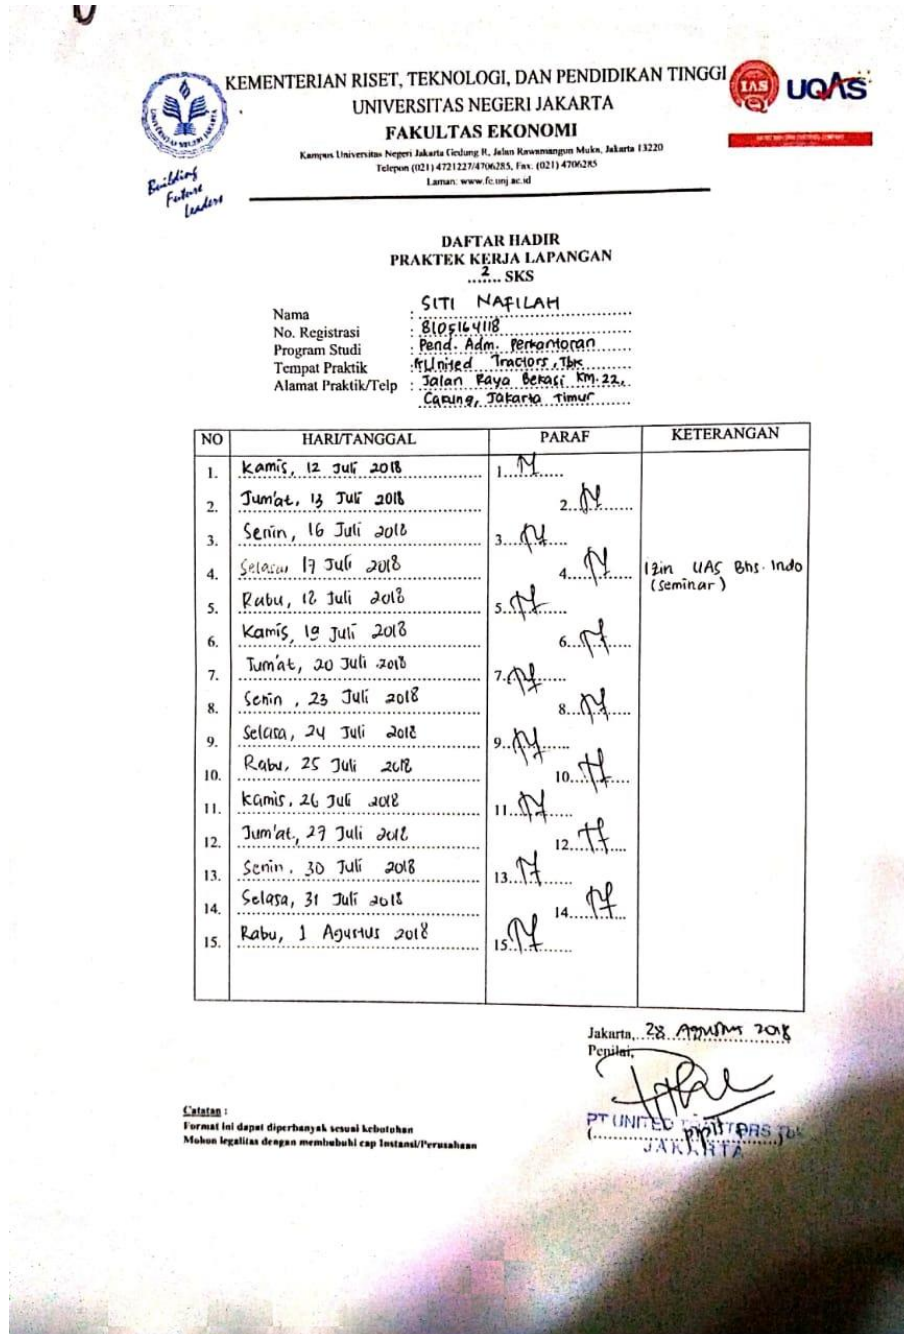 KEMENTERIAN RISET, TEKNOLOGI, DAN PENDIDIKAN TINGGI
UNIVERSITAS NEGERI JAKARTA
FAKULTAS EKONOMI
Kampus Universitas Negeri Jakarta Gedung R, Jalan Rawamangun Muka, Jakarta 13220
Telepon (021) 4721227/4706285, Fax. (021) 4706285
Laman: www.fe.unj.ac.id
Building
Future
Leaders
IAS
UQAS
DAFTAR HADIR
PRAKTEK KERJA LAPANGAN
...2... SKS
Nama : SITI NAFILAH
No. Registrasi : 8105164118
Program Studi : Pend. Adm. Perkantoran
Tempat Praktik : PT United Tractors, Tbk
Alamat Praktik/Telp : Jalan Raya Bekasi Km. 22,
Cakung, Jakarta Timur
NO HARI/TANGGAL PARAF KETERANGAN
1. Kamis, 12 Juli 2018 1.
2. Jum'at, 13 Juli 2018 2.
3. Senin, 16 Juli 2018 3.
4. Selasa, 17 Juli 2018 4. Izin UAS Bhs. Indo
(seminar)
5. Rabu, 18 Juli 2018 5.
6. Kamis, 19 Juli 2018 6.
7. Jum'at, 20 Juli 2018 7.
8. Senin, 23 Juli 2018 8.
9. Selasa, 24 Juli 2018 9.
10. Rabu, 25 Juli 2018 10.
11. Kamis, 26 Juli 2018 11.
12. Jum'at, 27 Juli 2018 12.
13. Senin, 30 Juli 2018 13.
14. Selasa, 31 Juli 2018 14.
15. Rabu, 1 Agustus 2018 15.
Jakarta, 28 Agustus 2018
Penilai,
PT UNITED TRACTORS Tbk
JAKARTA
Catatan :
Format ini dapat diperbanyak sesuai kebutuhan
Mohon legalitas dengan membubuhi cap Instansi/Perusahaan